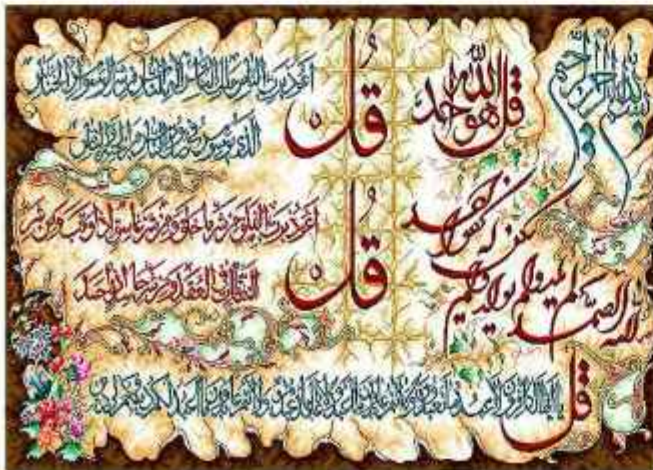 بسم الله الرحمن الرحيم
قل هو الله احد
الله الصمد لم يلد ولم يولد ولم
يكن له كفوا احد
قُل اعوذ برب الناس ملك الناس اله الناس من شر الوسواس الخناس
الذي يوسوس في صدور الناس من الجنة والناس
قُل اعوذ برب الفلق من شر ما خلق ومن شر غاسق اذا وقب ومن شر
النفاثات في العقد ومن شر حاسد اذا حسد
قل يا ايها الكافرون لا اعبد ما تعبدون لكم دينكم ولي دين